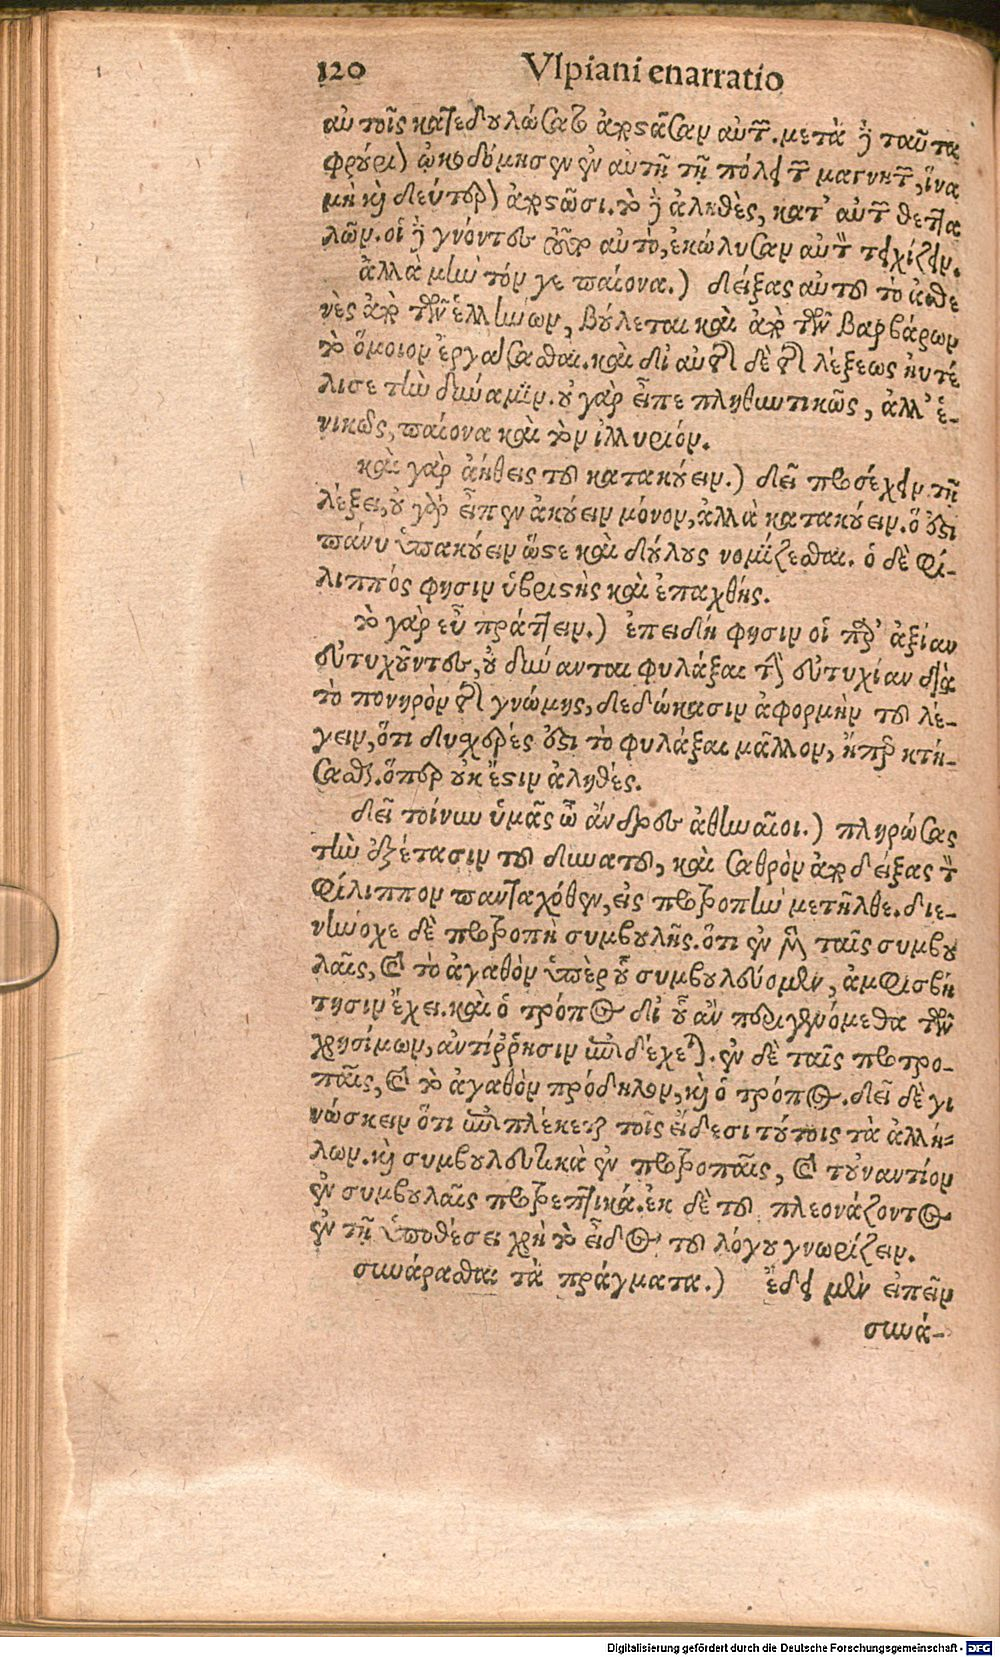 120 Vlpiani enarratio
αὐτοῖς κατεδουλώσατο ἀποστᾶσαν αὐτοῦ. μετὰ δὲ ταῦτα
φρούριον ᾠκοδόμησεν ἐν αὐτῇ τῇ πόλει τῶν μαγνητῶν, ἵνα
μὴ καὶ δεύτερον ἀποστῶσι. τὸ δὲ ἀληθὲς, κατ' αὐτῶν θετταλῶν
λῶν. οἱ δὲ γνόντες αὐτὸ, ἐκώλυσαν αὐτὸν τειχίζειν.
ἀλλὰ μὴν τόν γε παίονα.) δείξας αὐτοῦ τὸ ἀσθε
νὲς ἀπὸ τῶν ἑλλήνων, βούλεται καὶ ἀπὸ τῶν βαρβάρων
τὸ ὅμοιον ἐργάσασθαι. καὶ δι' αὐτῆς δὲ τῆς λέξεως ηὐτέ
λισε τὴν δύναμιν. οὐ γὰρ εἶπε πληθυντικῶς, ἀλλ' ἑ-
νικῶς, παίονα καὶ τὸν ἰλλυριόν.
καὶ γὰρ ἀήθεις τοῦ κατακούειν.) δεῖ προσέχειν τῇ
λέξει, οὐ γὰρ εἶπεν ἀκούειν μόνον, ἀλλὰ κατακούειν. ὅ ἐστι
πάνυ ὑπακούειν ὥστε καὶ δούλους νομίζεσθαι. ὁ δὲ φί-
λιππός φησιν ὑβριστὴς καὶ ἐπαχθής.
τὸ γὰρ εὖ πράττειν.) ἐπειδή φησιν οἱ παρ' ἀξίαν
εὐτυχοῦντες, οὐ δύνανται φυλάξαι τὴν εὐτυχίαν διὰ
τὸ πονηρὸν τῆς γνώμης, δεδώκασιν ἀφορμὴν τοῦ λέ-
γειν, ὅτι δυσχερές ἐστι τὸ φυλάξαι μᾶλλον, ἤπερ κτή-
σασθαι. ὅπερ οὐκ ἔστιν ἀληθές.
δεῖ τοίνυν ὑμᾶς ὦ ἄνδρες ἀθηναῖοι.) πληρώσας
τὴν ἐξέτασιν τοῦ δυνατοῦ, καὶ σαθρὸν ἀποδείξας τὸν
φίλιππον πανταχόθεν, εἰς προτροπὴν μετῆλθε. διε-
νήνοχε δὲ προτροπὴ συμβουλῆς. ὅτι ἐν μὲν ταῖς συμβου
λαῖς, καὶ τὸ ἀγαθὸν ὑπὲρ οὗ συμβουλεύομεν, ἀμφισβή
τησιν ἔχει. καὶ ὁ τρόπος δι' οὗ ἂν περιγενόμεθα τῶν
χρησίμων, ἀντίῤῥησιν ἐπιδέχεται. ἐν δὲ ταῖς προτρο-
παῖς, καὶ τὸ ἀγαθὸν πρόδηλον, καὶ ὁ τρόπος. δεῖ δὲ γι
νώσκειν ὅτι ἐπιπλέκεται τοῖς εἴδεσι τούτοις τὰ ἀλλή-
λων. καὶ συμβουλευτικὰ ἐν προτροπαῖς, καὶ τοὐναντίον
ἐν συμβουλαῖς προτρεπτικά. ἐκ δὲ τοῦ πλεονάζοντος
ἐν τῇ ὑποθέσει χρὴ τὸ εἶδος τοῦ λόγου γνωρίζειν.
συνάρασθαι τὰ πράγματα.) ἔδει μὲν εἰπεῖν
συνά-
Digitalisierung gefördert durch die Deutsche Forschungsgemeinschaft - DFG